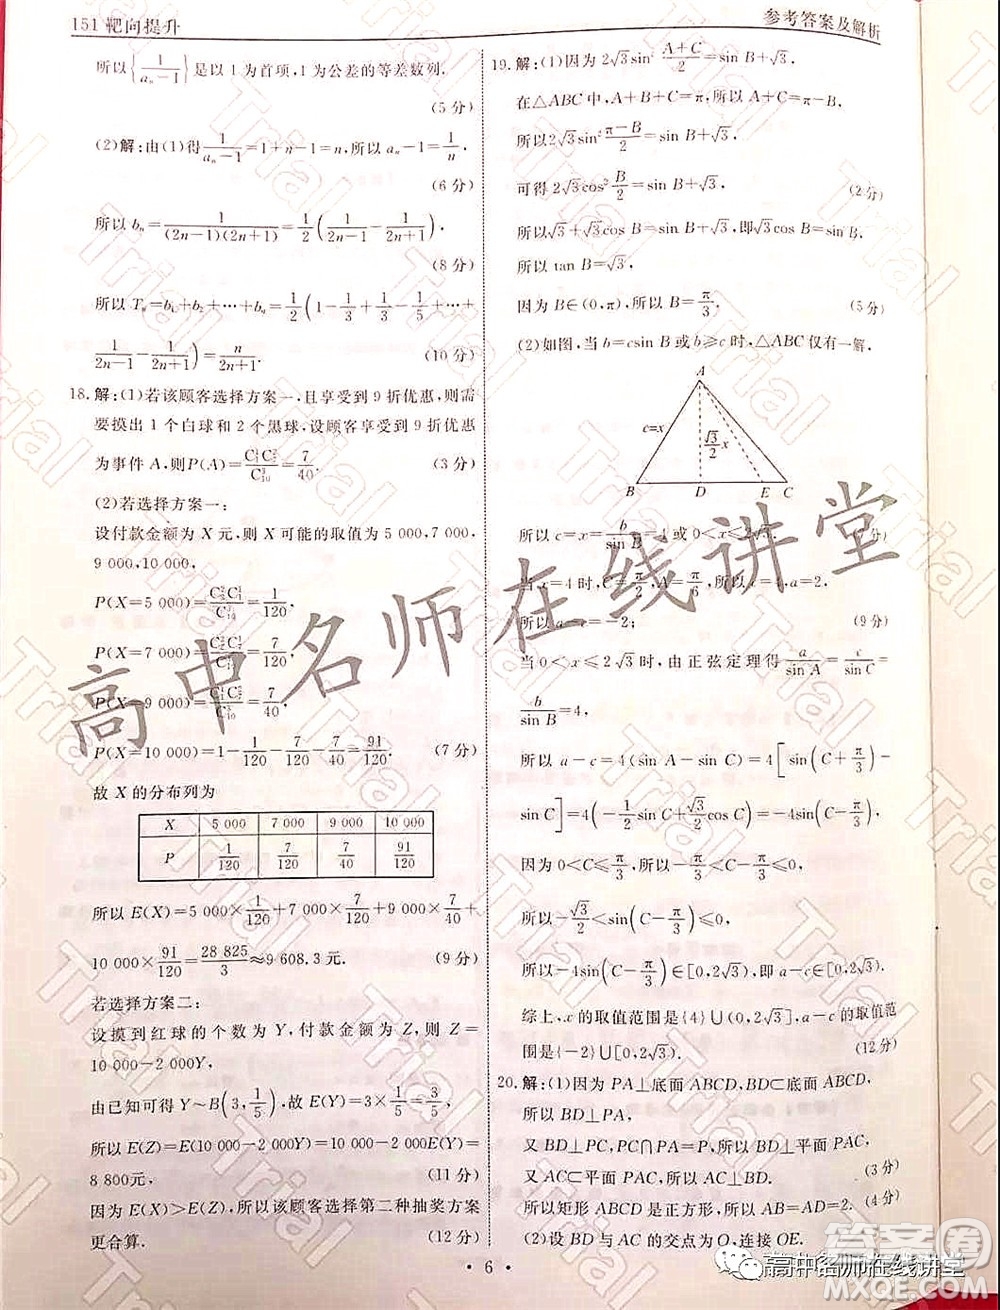 151 靶向提升
参考答案及解析
所以{1/(aₙ-1)}是以1为首项,1为公差的等差数列.
(5分)
(2)解:由(1)得1/(aₙ-1)=1+n-1=n,所以aₙ-1=1/n.
(6分)
所以bₙ=1/((2n-1)(2n+1))=1/2(1/(2n-1)-1/(2n+1)).
(8分)
所以Tₙ=b₁+b₂+…+bₙ=1/2(1-1/3+1/3-1/5+…+
1/(2n-1)-1/(2n+1))=n/(2n+1).
(10分)
18.解:(1)若该顾客选择方案一,且享受到9折优惠,则需
要摸出1个白球和2个黑球,设顾客享受到9折优惠
为事件A,则P(A)=C¹₃C²₇/C³₁₀=7/40. (3分)
(2)若选择方案一:
设付款金额为X元,则X可能的取值为5 000,7 000,
9 000,10 000,
P(X=5 000)=C²₂C¹₁/C³₁₀=1/120,
P(X=7 000)=C²₂C¹₇/C³₁₀=7/120,
P(X=9 000)=/C³₁₀=7/40,
P(X=10 000)=1-1/120-7/120-7/40=91/120. (7分)
故X的分布列为
X 5 000 7 000 9 000 10 000
P 1/120 7/120 7/40 91/120
所以E(X)=5 000×1/120+7 000×7/120+9 000×7/40+
10 000×91/120=28 825/3≈9 608.3元. (9分)
若选择方案二:
设摸到红球的个数为Y,付款金额为Z,则Z=
10 000-2 000Y,
由已知可得Y~B(3,1/5),故E(Y)=3×1/5=3/5,
所以E(Z)=E(10 000-2 000Y)=10 000-2 000E(Y)=
8 800元. (11分)
因为E(X)>E(Z),所以该顾客选择第二种抽奖方案
更合算. (12分)
19.解:(1)因为2√3sin²(A+C)/2=sin B+√3.
在△ABC中,A+B+C=π,所以A+C=π-B,
所以2√3sin²(π-B)/2=sin B+√3,
可得2√3cos²B/2=sin B+√3, (2分)
所以√3+√3cos B=sin B+√3,即√3cos B=sin B.
所以tan B=√3,
因为B∈(0,π),所以B=π/3. (5分)
(2)如图,当b=csin B或b≥c时,△ABC仅有一解.
A
c=x
√3/2 x
B D E C
所以c=x=b/sin B=4或0<x≤2√3.
当c=4时,C=π/2,A=π/6,所以c=4,a=2,
所以a-c=-2; (9分)
当0<x≤2√3时,由正弦定理得a/sin A=c/sin C=
b/sin B=4,
所以a-c=4(sin A-sin C)=4[sin(C+π/3)-
sin C]=4(-1/2 sin C+√3/2 cos C)=-4sin(C-π/3),
因为0<C≤π/3,所以-π/3<C-π/3≤0,
所以-√3/2<sin(C-π/3)≤0,
所以-4sin(C-π/3)∈[0,2√3),即a-c∈[0,2√3).
综上,x的取值范围是{4}∪(0,2√3],a-c的取值范
围是{-2}∪[0,2√3). (12分)
20.解:(1)因为PA⊥底面ABCD,BD⊂底面ABCD,
所以BD⊥PA,
又BD⊥PC,PC∩PA=P,所以BD⊥平面PAC,
又AC⊂平面PAC,所以BD⊥AC. (3分)
所以矩形ABCD是正方形,所以AB=AD=2. (4分)
(2)设BD与AC的交点为O,连接OE.
• 6 •
高中名师在线讲堂
高中名师在线讲堂
答案圈
Trial